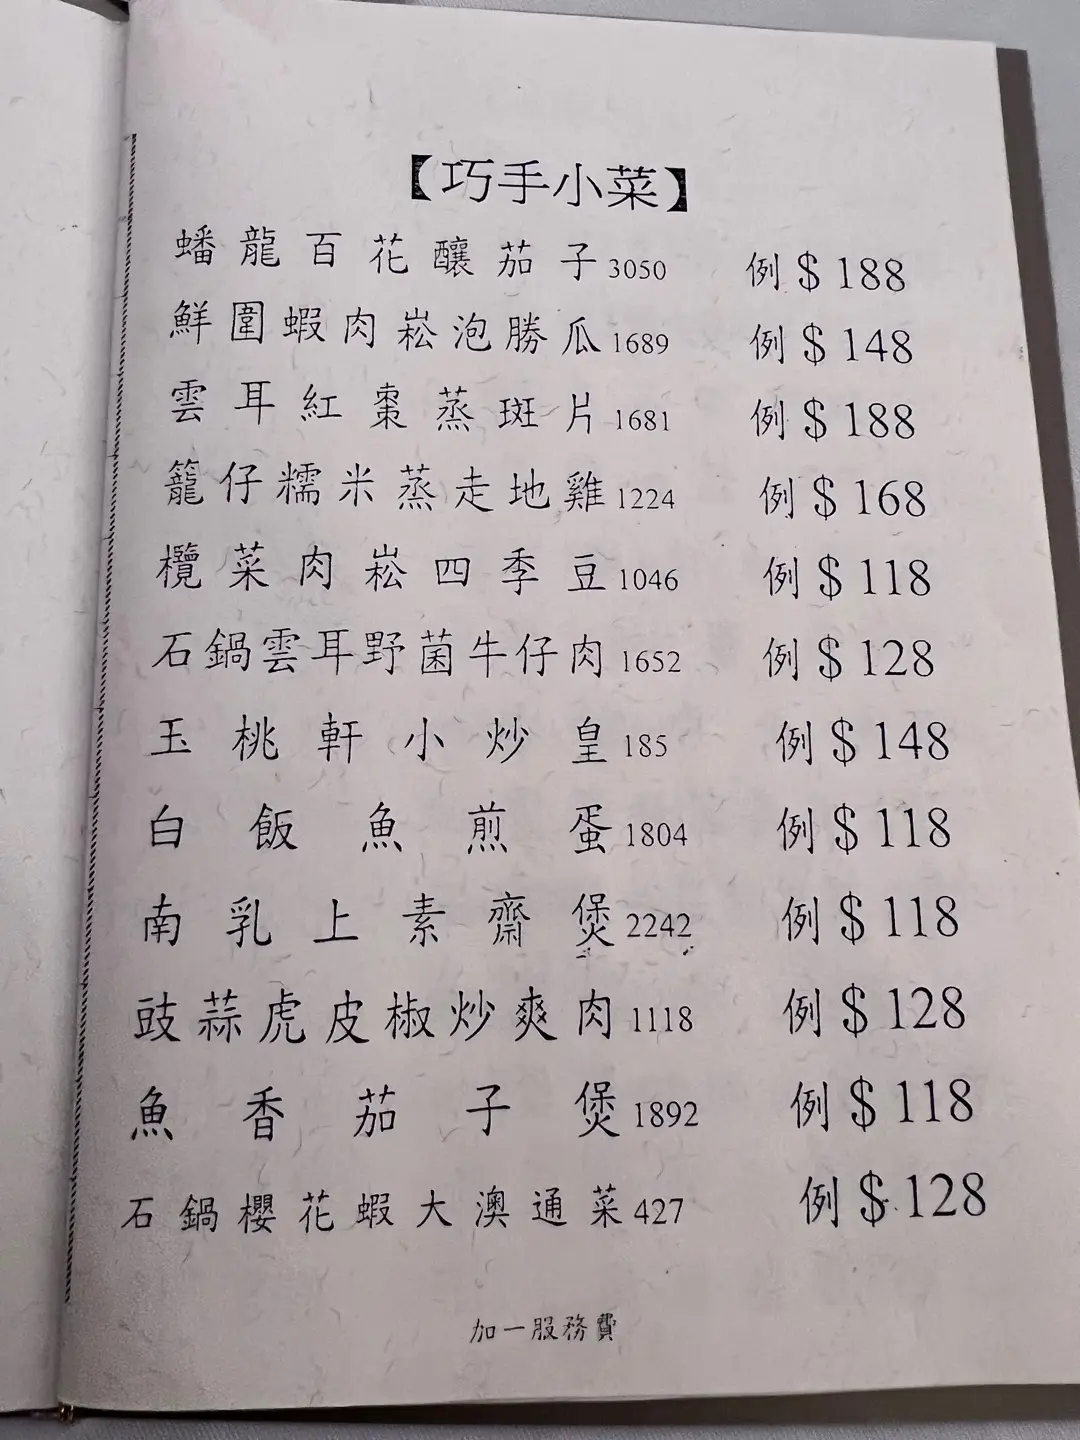 【巧手小菜】
蟠龍百花釀茄子3050 例$188
鮮圍蝦肉崧泡勝瓜1689 例$148
雲耳紅棗蒸斑片1681 例$188
籠仔糯米蒸走地雞1224 例$168
欖菜肉崧四季豆1046 例$118
石鍋雲耳野菌牛仔肉1652 例$128
玉桃軒小炒皇185 例$148
白飯魚煎蛋1804 例$118
南乳上素齋煲2242 例$118
豉蒜虎皮椒炒爽肉1118 例$128
魚香茄子煲1892 例$118
石鍋櫻花蝦大澳通菜427 例$128
加一服務費